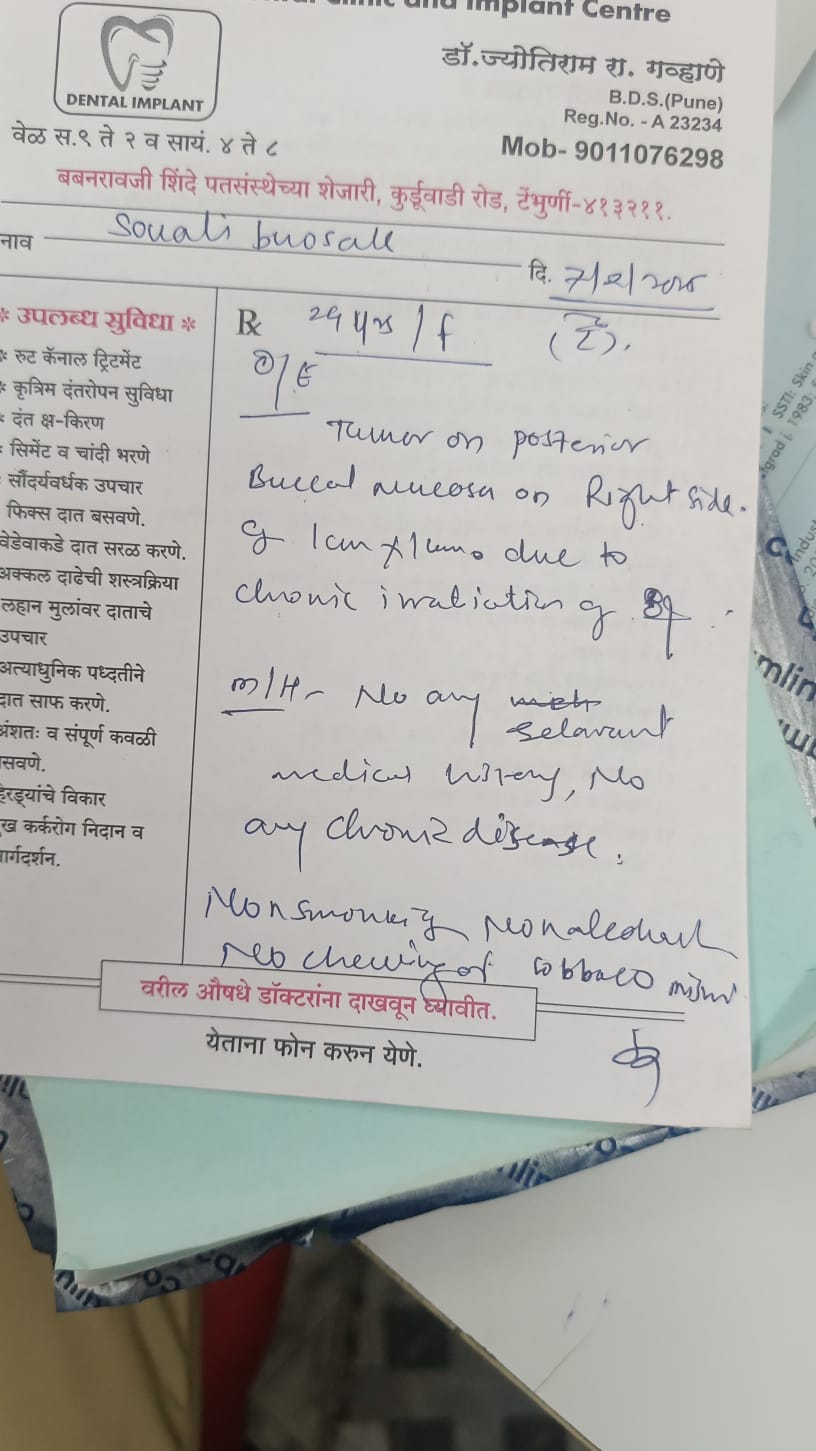 Implant Centre
DENTAL IMPLANT
डॉ.ज्योतिराम रा. गव्हाणे
B.D.S.(Pune)
Reg.No. - A 23234
Mob- 9011076298
वेळ स.९ ते २ व सायं. ४ ते ८
बबनरावजी शिंदे पतसंस्थेच्या शेजारी, कुर्डूवाडी रोड, टेंभुर्णी-४१३२११.
नाव
दि.
* उपलब्ध सुविधा *
रुट कॅनाल ट्रिटमेंट
कृत्रिम दंतरोपन सुविधा
दंत क्ष-किरण
सिमेंट व चांदी भरणे
सौंदर्यवर्धक उपचार
फिक्स दात बसवणे.
वेडेवाकडे दात सरळ करणे.
अक्कल दाढेची शस्त्रक्रिया
लहान मुलांवर दाताचे
उपचार
अत्याधुनिक पध्दतीने
दात साफ करणे.
अंशतः व संपूर्ण कवळी
सवणे.
हिरड्यांचे विकार
मुख कर्करोग निदान व
मार्गदर्शन.
Rx 29 yrs / f
O/E
Tumor on posterior
Buccal mucosa on Right side.
of 1cm x 1cm. due to
chronic irratiation of
M/H - No any
relavant
medical history, No
any chronic disease.
Nonsmoking Nonalcohol
No chewing of tobbaco
वरील औषधे डॉक्टरांना दाखवून घ्यावीत.
येताना फोन करुन येणे.